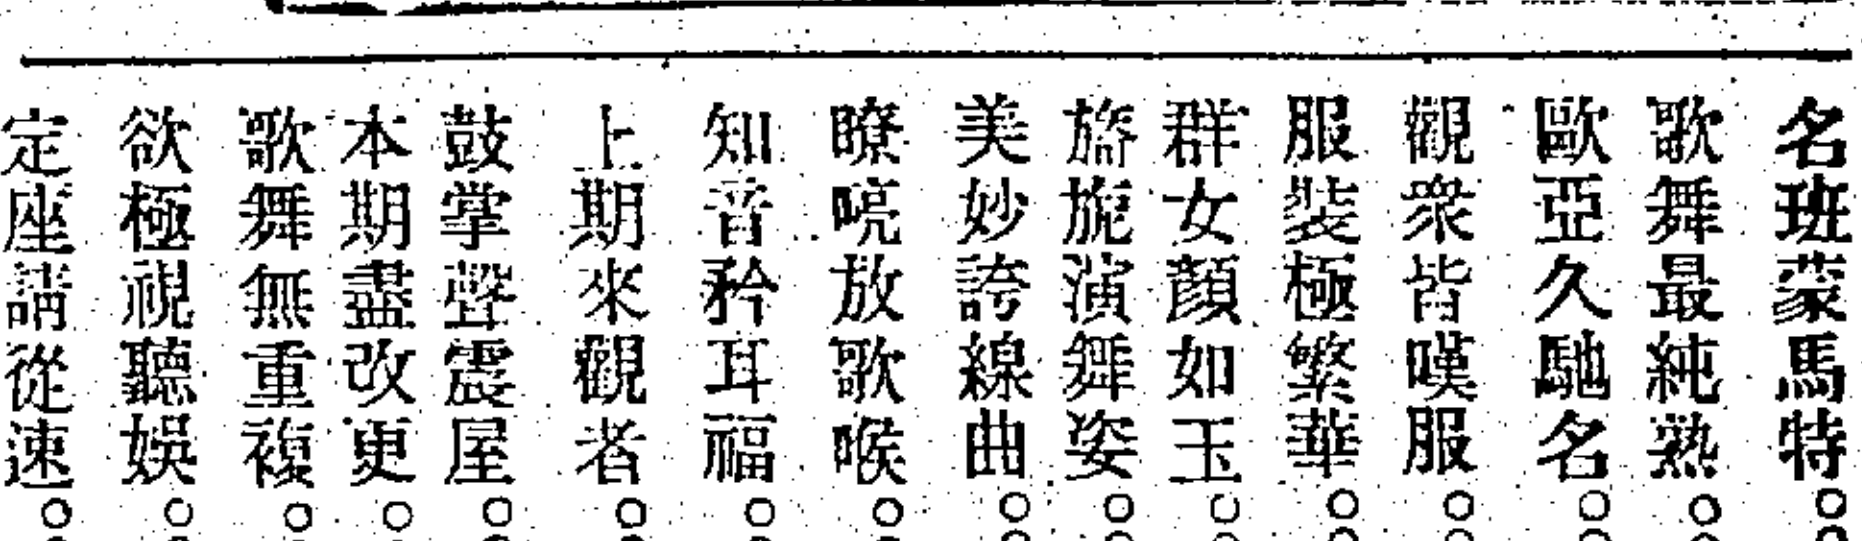 名班蒙馬特。
歌舞最純熟。
歐亞久馳名。
觀衆皆嘆服。
服裝極繁華。
群女顏如玉。
旖旎演舞姿。
美妙誇線曲。
瞭喨放歌喉。
知音矜耳福。
上期來觀者。
鼓掌聲震屋。
本期盡改更。
歌舞無重複。
欲極視聽娛。
定座請從速。